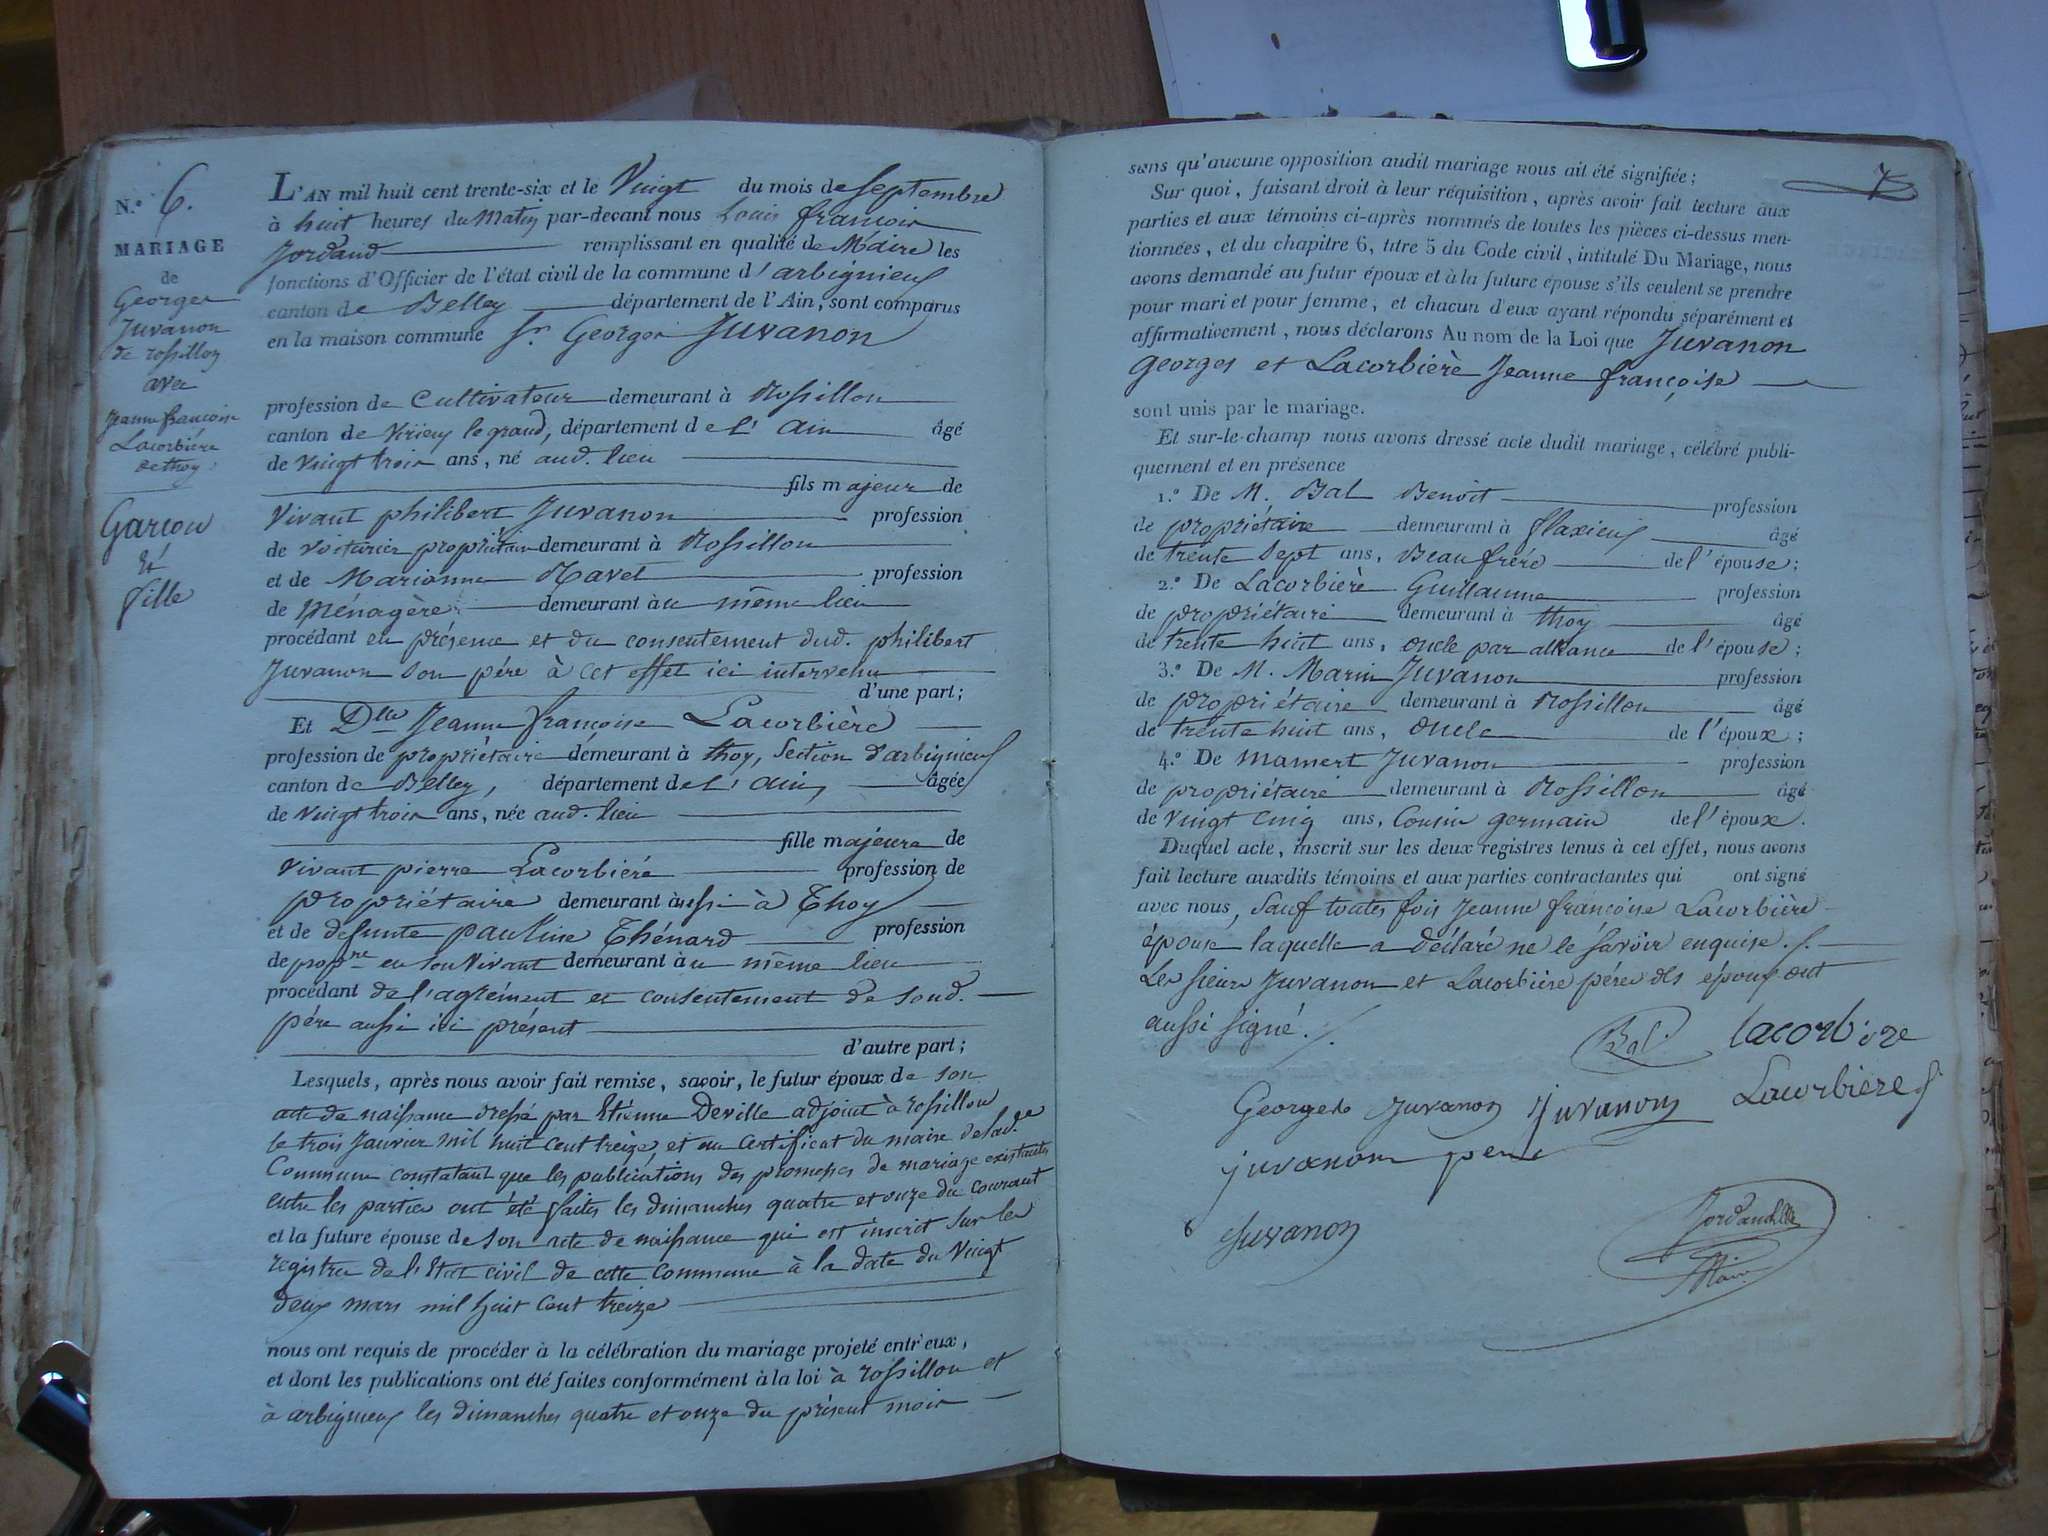 N.º 6.
MARIAGE
de
Georges
Juvanon
de rossillon
avec
Jeanne francoise
Lacorbière
de thoy
Garcon
Et
fille
L'AN mil huit cent trente-six et le Vingt du mois de Septembre
à huit heures du Matin par-devant nous Louis françois
Jordand remplissant en qualité de Maire les
fonctions d'Officier de l'état civil de la commune d'arbignieux
canton de Belley département de l'Ain, sont comparus
en la maison commune Sr. Georges Juvanon
profession de Cultivateur demeurant à Rossillon
canton de Virieu le grand, département de L'Ain âgé
de Vingt trois ans, né aud. lieu
fils majeur de
Vivant philibert Juvanon profession
de voiturier propriétaire demeurant à Rossillon
et de Marianne Ravet profession
de Ménagère demeurant àu même lieu
procédant en présence et du consentement dud. philibert
Juvanon son père à cet effet ici intervenu
d'une part;
Et Dlle Jeanne françoise Lacorbière
profession de propriétaire demeurant à thoy, Section d'arbignieux
canton de Belley, département de L'Ain, âgée
de Vingt trois ans, née aud. lieu
fille majeure de
Vivant pierre Lacorbière profession de
propriétaire demeurant àussi à Thoy
et de defunte pauline Thénard profession
de propre en son Vivant demeurant àu même lieu
procédant de l'agrément et consentement de sond.
père aussi ici présent
d'autre part;
Lesquels, après nous avoir fait remise, savoir, le futur époux de son
acte de naissance dressé par Etienne Deville adjoint à rossillon
le trois Janvier mil huit cent treize, et un certificat du maire de lad.te
Commune constatant que les publications des promesses de mariage existantes
entre les parties ont été faites les dimanches quatre et onze du courant
et la future épouse de son acte de naissance qui est inscrit sur les
registres de l'Etat civil de cette Commune à la date du Vingt
deux mars mil huit cent treize
nous ont requis de procéder à la célébration du mariage projeté entr'eux,
et dont les publications ont été faites conformément à la loi à rossillon et
à arbignieux les dimanches quatre et onze du présent mois
7
sans qu'aucune opposition audit mariage nous ait été signifiée;
Sur quoi, faisant droit à leur réquisition, après avoir fait lecture aux
parties et aux témoins ci-après nommés de toutes les pièces ci-dessus men-
tionnées, et du chapitre 6, titre 5 du Code civil, intitulé Du Mariage, nous
avons demandé au futur époux et à la future épouse s'ils veulent se prendre
pour mari et pour femme, et chacun d'eux ayant répondu séparément et
affirmativement, nous déclarons Au nom de la Loi que Juvanon
georges et Lacorbière Jeanne françoise
sont unis par le mariage.
Et sur-le-champ nous avons dressé acte dudit mariage, célébré publi-
quement et en présence
1.º De M. Bal Benoit profession
de propriétaire demeurant à flaxieux âgé
de trente sept ans, Beau frère de l'épouse;
2.º De Lacorbière Guillaume profession
de propriétaire demeurant à thoy âgé
de trente huit ans, oncle par alliance de l'épouse;
3.º De M. Marin Juvanon profession
de propriétaire demeurant à Rossillon âgé
de trente huit ans, oncle de l'époux;
4.º De mamert Juvanon profession
de propriétaire demeurant à Rossillon âgé
de vingt cinq ans, Cousin germain de l'époux.
Duquel acte, inscrit sur les deux registres tenus à cet effet, nous avons
fait lecture auxdits témoins et aux parties contractantes qui ont signé
avec nous, Sauf toutes fois Jeanne françoise Lacorbière
épouse laquelle a déclaré ne le savoir enquise.
Les sieurs Juvanon et Lacorbière père des époux ont
aussi signé.
Bal lacorbière
Georges Juvanon Juvanon Lacorbiere
juvanon pere
Juvanon
Jordand
Maire